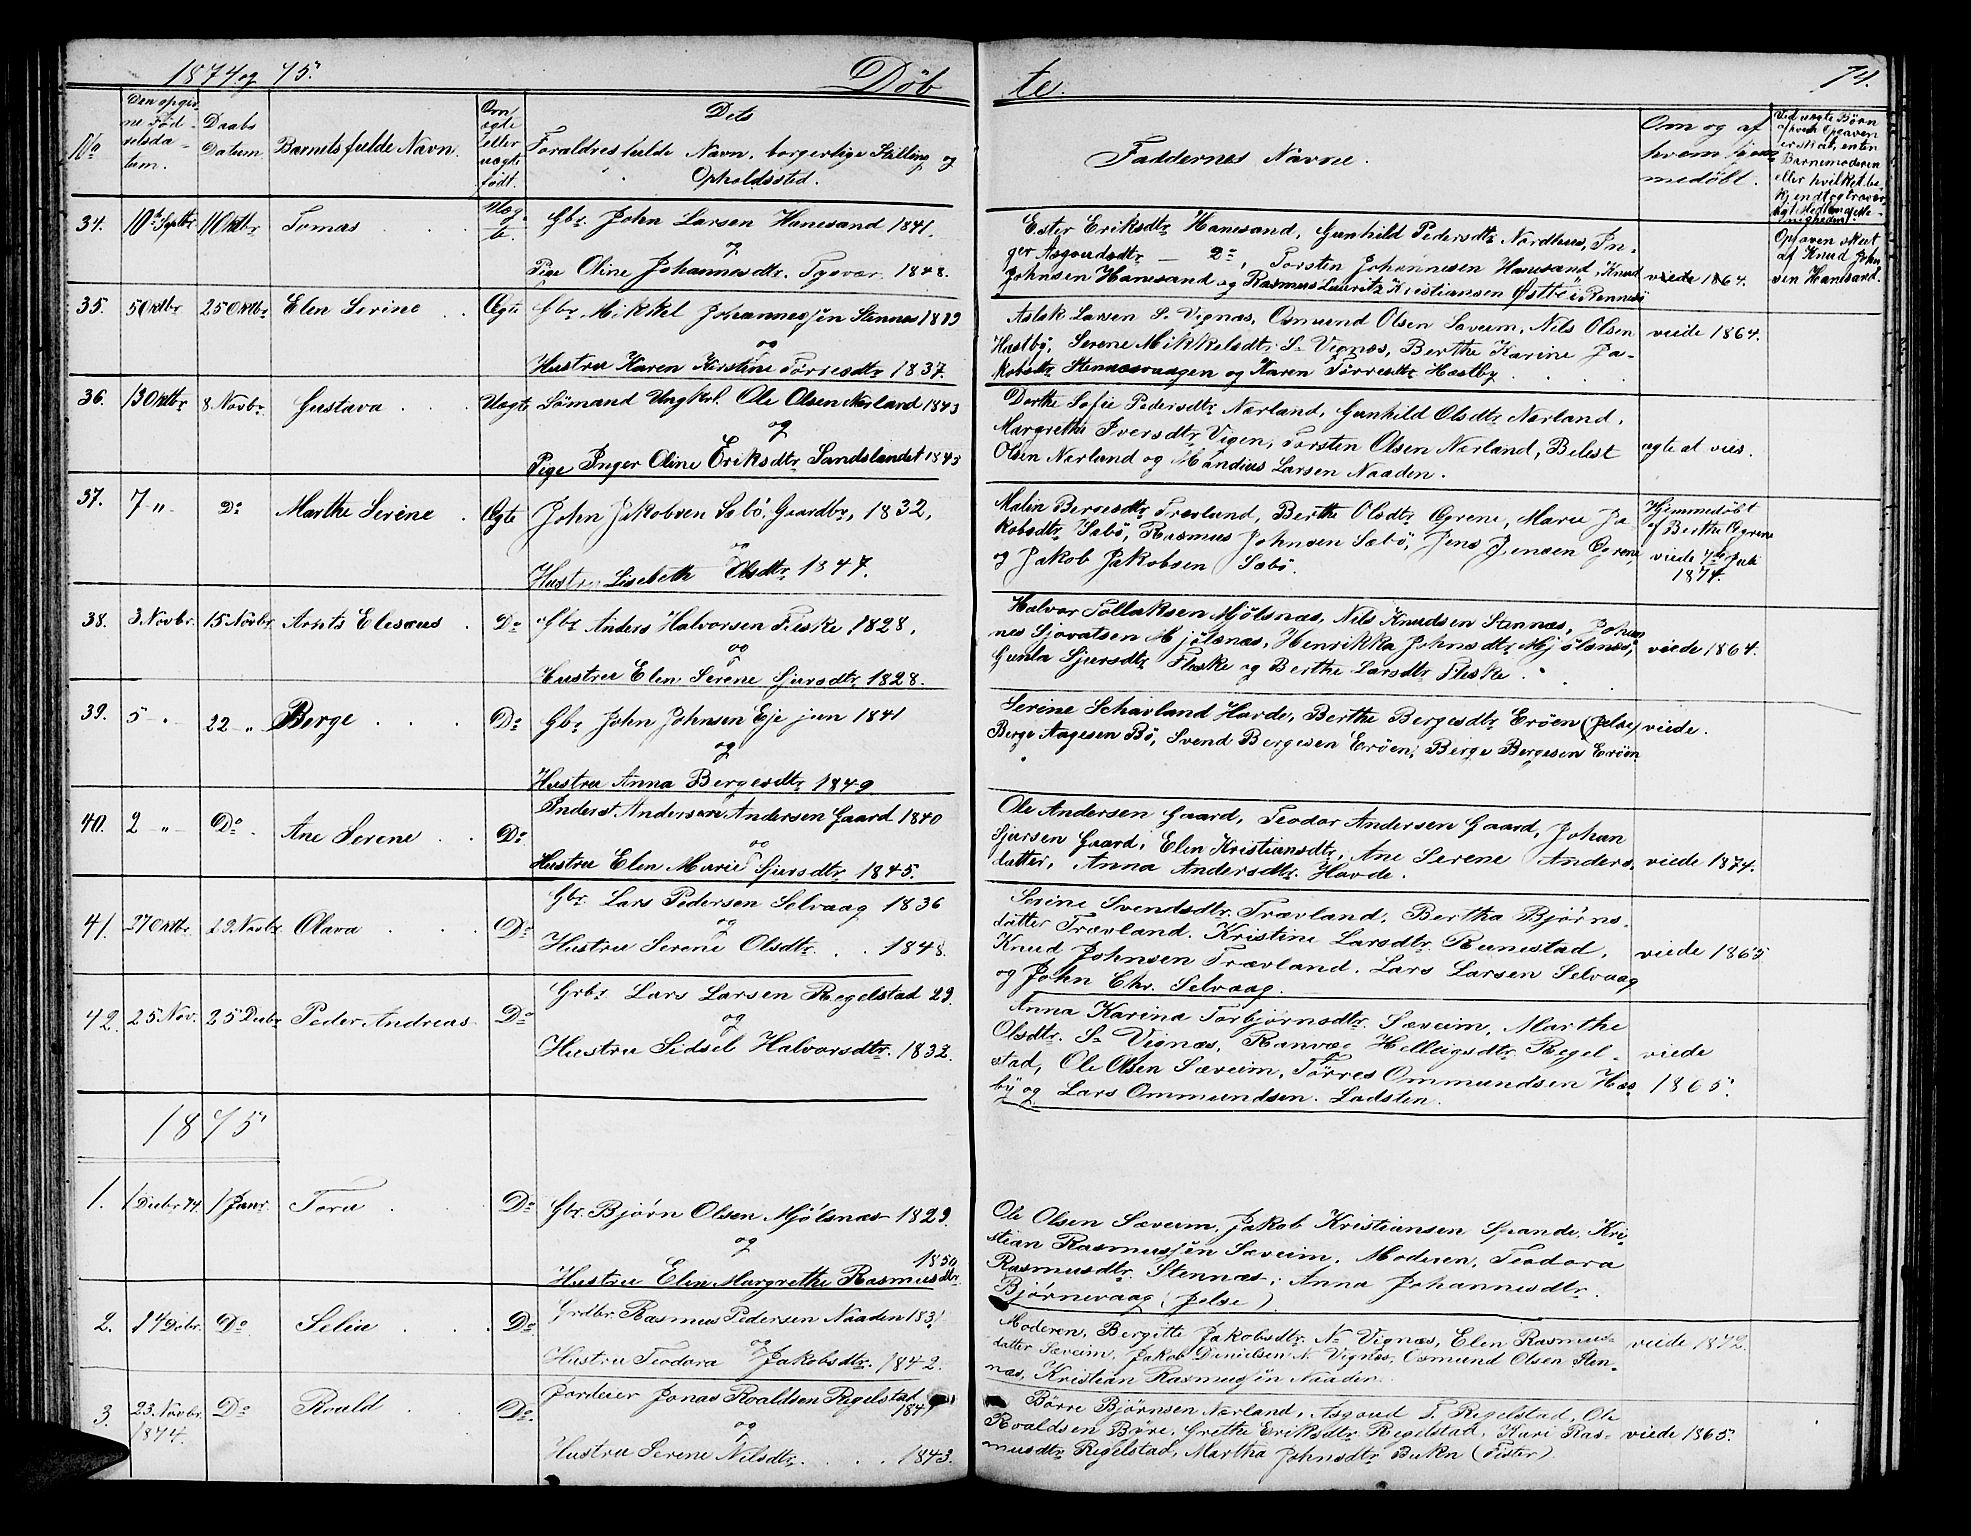 1874 og 75.
Døb
te.
74.
No
Den opgiv-
ne Fød-
selsda-
tum.
Daabs
Datum
Barnets fulde Navn.
Om
ægte
eller
uægte
født.
Dets
Forældres fulde Navn, borgerlige Stilling og
Opholdssted.
Faddernes Navne.
Om og af
hvem hjem-
medøbt.
Ved uægte Børn
af hvem Opgaven
er skeet, enten
Barnemoderen
eller hvilket be-
34. 10de Septbr 11 Oktbr Tomas
Gbr. John Larsen Hanesand 1841.
og
Pige Oline Johannesdtr. Tysvær. 1848.
Ester Eriksdtr Hanesand, Gunhild Pedersdtr Nordhus, In-
ger Asgoudsdtr — Do, Torsten Johannesen Hanesand, Knud
Johnsen Hanesand og Rasmus Lauritz Kristiansen Østbø i Rennesø
viede 1864.
Opgaven skeet
af Knud John
sen Hanesand.
35. 5 Oktbr 25 Oktbr Elen Serine . . Ægte
Gbr Mikkel Johannessen Stennes 1819
og
Hustru Karen Kirstine Tørresdtr 1837.
Aslak Larsen S. Vignæs, Osmund Olsen Sæveim, Nils Olsen
Hæstby, Serene Mikkelsdtr. S. Vignæs, Berthe Karine Ja-
kobsdtr Stennæsvaagen og Karen Tørresdtr Hæstby
viede 1864.
36. 13 Oktbr 8. Novbr. Gustava . . . Uægte
Sømand Ungkal. Ole Olsen Nærland 1843
og
Pige Inger Oline Eriksdtr Sandslandet 1843
Dorthe Sofie Pedersdtr Nærland, Gunhild Olsdtr Nærland,
Margrethe Iversdtr Vigen, Torsten Olsen Nærland, Belest
Olsen Nærland og Mandius Larsen Naaden.
agte at vies.
37. 7 -"- Do Marthe Serine . Ægte
John Jakobsen Sæbö, Gaardbr, 1832,
og
Hustru Lisebeth Olsdtr 1847.
Malin Bergesdtr Trævland, Berthe Olsdtr Øgrene, Marie Ja
kobsdtr Sæbö, Rasmus Johnsen Sæbö, Jens Jensen Øgrene,
og Jakob Jakobsen Sæbö.
Hjemmedøbt
af Berthe Øgrene
viede 7de Juli
1874.
38. 3 Novbr. 15 Novbr. Arnts Elesæus . Do
Gbr Anders Halvorsen Fleske 1828,
og
Hustru Elen Serene Sjursdtr 1828.
Halvor Tollaksen Mjølsnæs, Nils Knudsen Stennæs, Johan
nes Sjovatsen Mjølsnæs, Henrikka Johnsdtr Mjølsnæs,
Gunla Sjursdtr Fleske og Berthe Larsdtr Fleske.
viede 1864.
39. 5 -"- 22 -"- Berge . . . Do
Gbr John Johnsen Eje jun 1841
og
Hustru Anna Bergesdtr 1849
Serine Schavland Havde, Berthe Bergesdtr Erøen (Jelse)
Berge Aagesen Bö, Svend Bergesen Erøen, Berge Bergesen Erøen
viede.
40. 2 -"- Do. Ane Serene . . Do
Inderst Anders Andersen Gaard 1840
og
Hustru Elen Marie Sjursdtr 1845.
Ole Andersen Gaard, Teodor Andersen Gaard, Johan
Sjursen Gaard, Elen Kristiansdtr, Ane Serene Anders-
datter, Anna Andersdtr. Havde.
viede 1874.
41. 27 Oktbr. 29. Novbr. Olava . . . Do
Gbr. Lars Pedersen Selvaag 1836
og
Hustru Serene Olsdtr. . . 1848.
Serine Svendsdtr. Trævland, Bertha Bjørns-
datter Trævland. Kristine Larsdtr Runestad,
Knud Johnsen Trævland. Lars Larsen Selvaag
og John Chr. Selvaag.
viede 1865
42. 25 Nov. 25 Decbr Peder Andreas Do
Grbr Lars Larsen Regelstad 29.
og
Hustru Sidsel Halvorsdtr. 1832.
Anna Karina Torbjørnsdtr. Sæveim, Marthe
Olsdtr. S. Vignæs, Ranvæe Hellugsdtr Regel-
stad, Ole Olsen Sæveim, Tørres Ommundsen Hæs-
by og Lars Ommundsen. Ladsten.
viede
1865.
1875
1. 1 Decbr 74. 1 Janr. Tora . . Do
Gbr. Bjørn Olsen Mjølsnæs 1829.
og
1850
Hustru Elen Margrethe Rasmusdtr.
Ole Olsen Sæveim, Jakob Kristiansen Spande, Kri-
stian Rasmussen Sæveim, Moderen, Teodora
Rasmusdtr. Stennæs, Anna Johannesdtr.
Bjørnevaag (Jelse)
2. 14 Debr. Do Selia . . . Do
Grdbr. Rasmus Pedersen Naaden 183
og
Hustru Teodora Jakobsdtr. 1842.
Moderen, Bergitte Jakobsdtr. N. Vignæs, Elen Rasmus-
datter Sæveim, Jakob Danielsen N. Vignæs, Osmund Olsen Sten-
næs, Kristian Rasmussen Naaden.
viede 1872.
3. 23. Novbr. Do Roald . . Do.
1874.
Jordeier Jonas Roaldsen Regelstad
184
og
Hustru Serene Nilsdtr. . . . . 1843.
Børre Bjørnsen Nærland, Asgoud T. Regelstad, Ole
Roaldsen Børe, Grethe Eriksdtr Regelstad, Kari Ras-
musdtr Regelstad, Martha Johnsdtr Buken (Fister)
viede 1865.